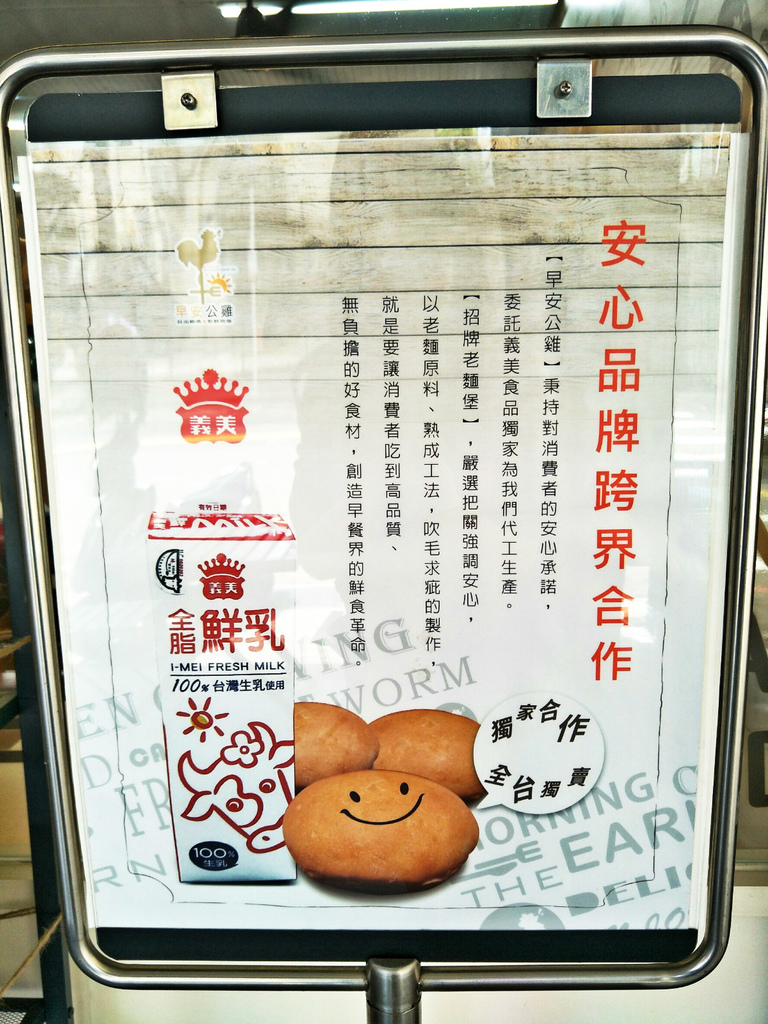 安心品牌跨界合作
【早安公雞】秉持對消費者的安心承諾，
委託義美食品獨家為我們代工生產。
【招牌老麵堡】，嚴選把關強調安心，
以老麵原料、熟成工法，吹毛求疵的製作，
就是要讓消費者吃到高品質、
無負擔的好食材，創造早餐界的鮮食革命。
早安公雞
義美
義美
全脂鮮乳
I-MEI FRESH MILK
100% 台灣生乳使用
100%
生乳
獨家合作
全台獨賣
WORM
MORNING
THE EARL